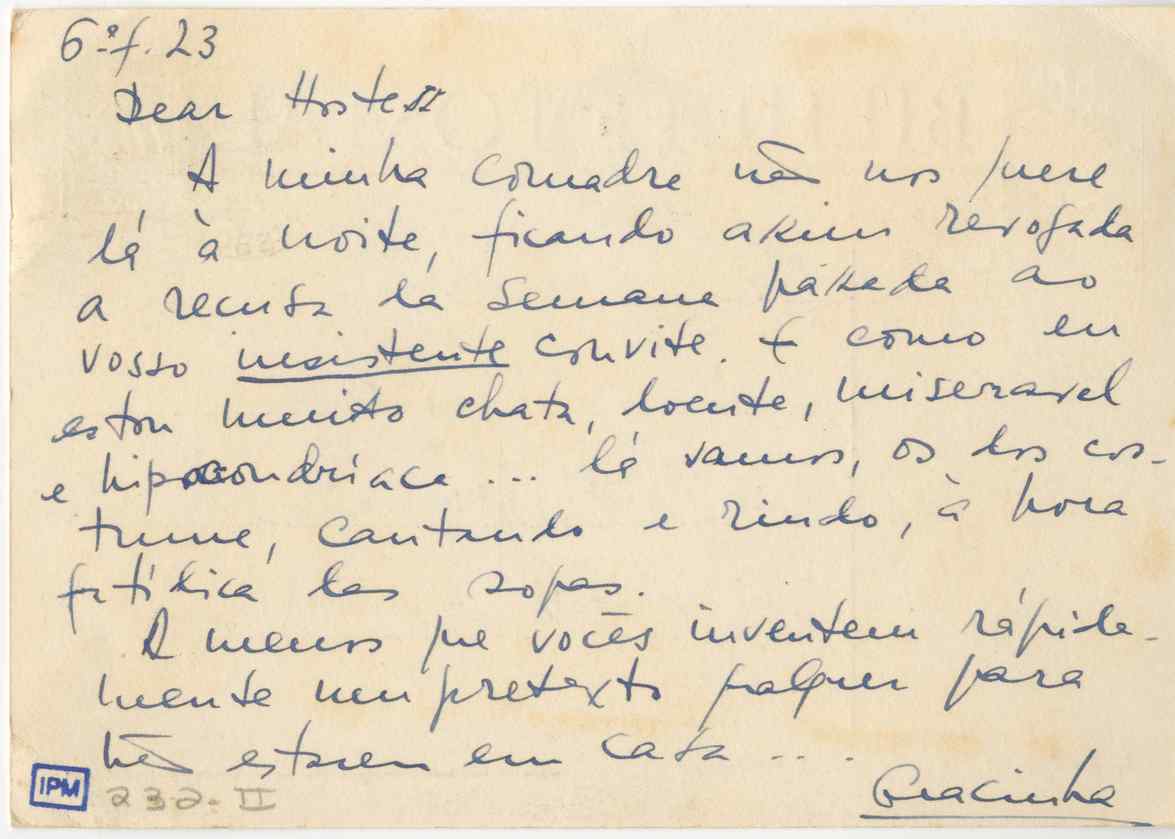 6ª f. 23
Dear Hostess
A minha comadre não nos quere
lá à noite, ficando assim revogada
a recusa da semana passada ao
vosso insistente convite. E como eu
estou muito chata, doente, miseravel
e hipocondríaca ... lá vamos, os dos cos-
tume, cantando e rindo, à hora
fatídica das sopas.
A menos que vocês inventem rápida-
mente um pretexto qualquer para
não estarem em casa ...
Gracinha
IPM 232-II